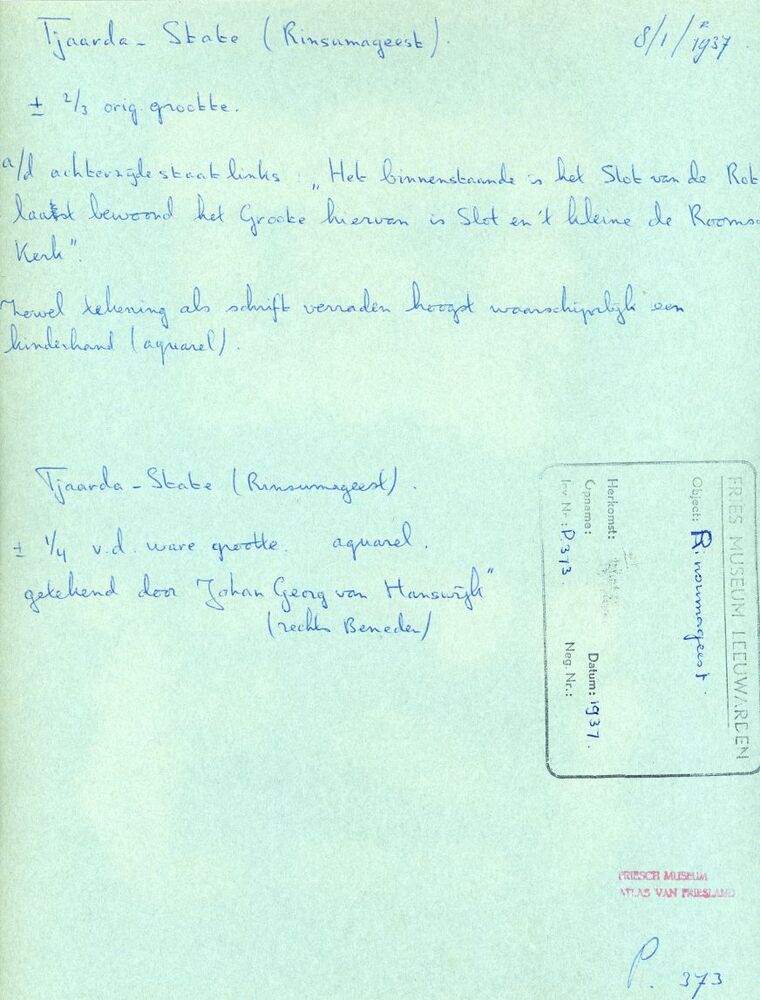 Tjaarda - State (Rinsumageest). 8/1/1937.
± 2/3 orig. grootte.
a/d achterzijde staat links: „Het binnenstaande is het Slot van de Rot
laatst bewoond het Groote hiervan is Slot en 't kleine de Rooms
Kerk".
Zowel tekening als schrift verraden hoogst waarschijnlijk een
kinderhand (aquarel).
Tjaarda - State (Rinsumageest).
± 1/4 v.d. ware grootte. aquarel.
getekend door Johan Georg von Hanswijk"
(rechts Beneden)
FRIES MUSEUM LEEUWARDEN
Object: Rinsumageest.
Herkomst:
Opname: Datum: 1937.
Inv. Nr.: P 373. Neg. Nr.:
FRIESCH MUSEUM
ATLAS VAN FRIESLAND
P. 373